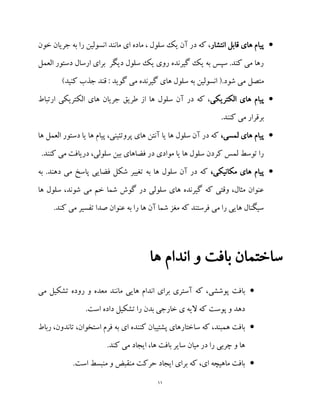 • پیام های قابل انتشار، که در آن یک سلول ، ماده ای مانند انسولین را به جریان خون
رها می کند. سپس به یک گیرنده روی یک سلول دیگر برای ارسال دستور العمل
متصل می شود.( انسولین به سلول های گیرنده می گوید : قند جذب کنید)
• پیام های الکتریکی، که در آن سلول ها از طریق جریان های الکتریکی ارتباط
برقرار می کنند.
• پیام های لمسی، که در آن سلول ها با آنتن های پروتئینی، پیام ها یا دستور العمل ها
را توسط لمس کردن سلول ها یا موادی در فضاهای بین سلولی، دریافت می کنند.
• پیام های مکانیکی، که در آن سلول ها به تغییر شکل فضایی پاسخ می دهند. به
عنوان مثال، وقتی که گیرنده های سلولی در گوش شما خم می شوند، سلول ها
سیگنال هایی را می فرستند که مغز شما آن ها را به عنوان صدا تفسیر می کند.
ساختمان بافت و اندام ها
• بافت پوششی، که آستری برای اندام هایی مانند معده و روده تشکیل می
دهد و پوست که لایه ی خارجی بدن را تشکیل داده است.
• بافت همبند، که ساختارهای پشتیبان کننده ای به فرم استخوان، تاندون، رباط
ها و چربی را در میان سایر بافت ها، ایجاد می کند.
• بافت ماهیچه ای، که برای ایجاد حرکت منقبض و منبسط است.
۱۱